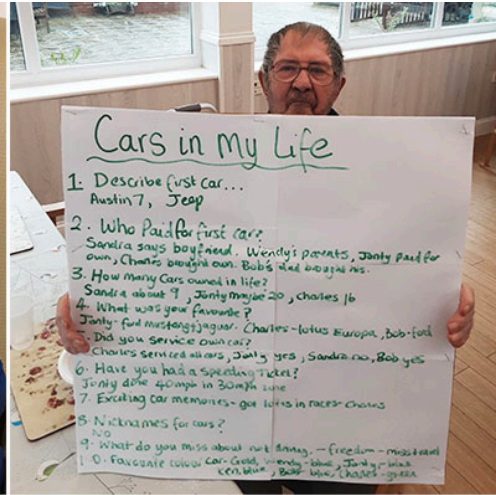 Cars in My Life
1. Describe first car...
Austin 7, Jeep
2. Who Paid for first car?
Sandra says boyfriend. Wendy's parents, Jonty paid for
own, Charles brought own. Bob's dad brought his.
3. How many Cars owned in life?
Sandra about 9, Jonty maybe 20, Charles 16
4. What was your favourite?
Jonty - ford mustang + jaguar. Charles - lotus Europa, Bob - ford
Did you service own car?
Charles serviced all cars, Jonty yes, Sandra no, Bob yes
6. Have you had a speeding ticket?
Jonty done 40mph in 30mph zone
7. Exciting car memories - got lotus in races - Charles
8. Nicknames for cars?
No
9. What do you miss about not driving. - freedom - miss travel
10. Favourite colour Car - Gold, Wendy - blue, Jonty - blue
Ken, blue, Bob blue, Charles - green